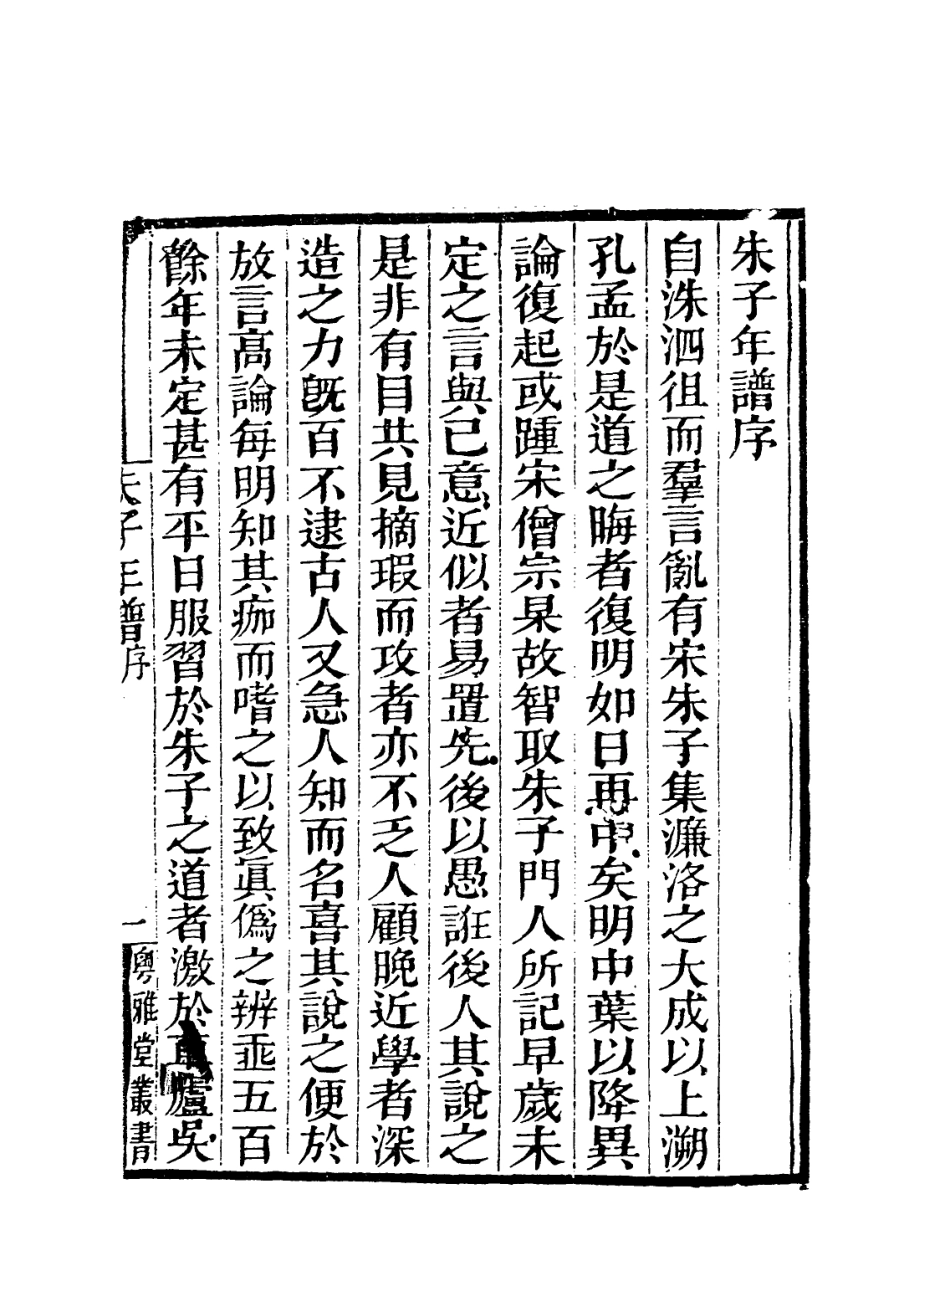 朱子年譜序
自洙泗徂而羣言亂有宋朱子集濂洛之大成以上溯
孔孟於是道之晦者復明如日再中矣明中葉以降異
論復起或踵宋僧宗杲故智取朱子門人所記早歲未
定之言與己意近似者易置先後以愚誑後人其說之
是非有目共見摘瑕而攻者亦不乏人顧晚近學者深
造之力旣百不逮古人又急人知而名喜其說之便於
放言高論每明知其痂而嗜之以致眞僞之辨垂五百
餘年未定甚有平日服習於朱子之道者激於吳
朱子年譜序
一
粵雅堂叢書